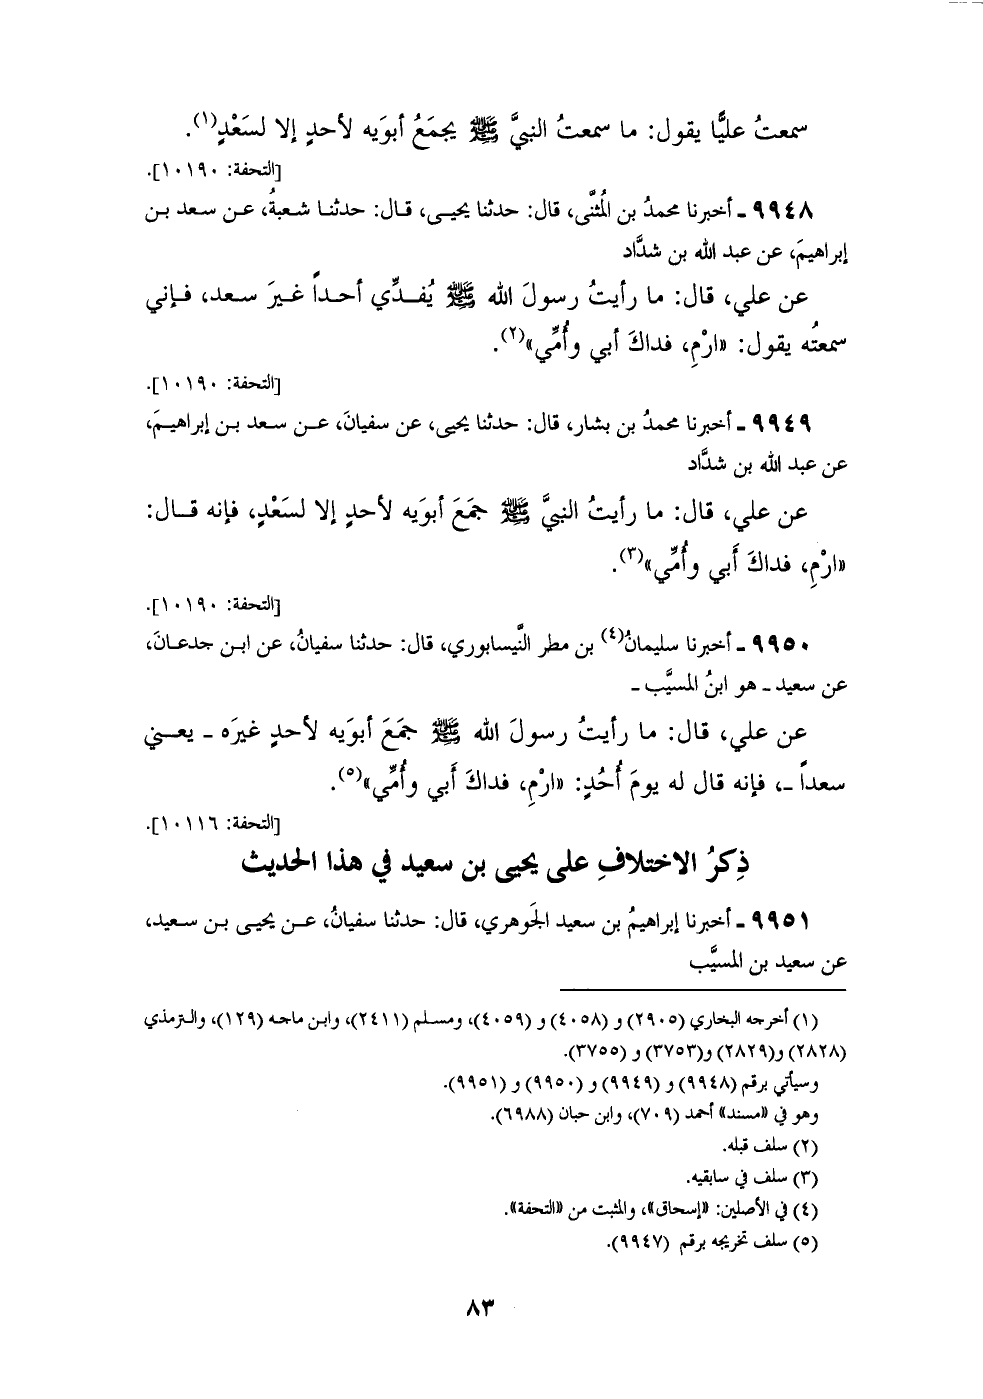 سمعتُ عليًّا يقول: ما سمعتُ النبيَّ ﷺ يجمَعُ أبوَيه لأحدٍ إلا لسَعْدٍ(١).
[التحفة: ١٠١٩٠].
٩٩٤٨ ـ أخبرنا محمدُ بن المُثنَّى، قال: حدثنا يحيى، قال: حدثنا شعبةُ، عن سعد بن
إبراهيمَ، عن عبد الله بن شدَّاد
عن علي، قال: ما رأيتُ رسولَ الله ﷺ يُفدِّي أحداً غيرَ سعد، فإني
سمعتُه يقول: «ارْمِ، فداكَ أبي وأُمِّي»(٢).
[التحفة: ١٠١٩٠].
٩٩٤٩ ـ أخبرنا محمدُ بن بشار، قال: حدثنا يحيى، عن سفيانَ، عن سعد بن إبراهيمَ،
عن عبد الله بن شدَّاد
عن علي، قال: ما رأيتُ النبيَّ ﷺ جمَعَ أبوَيه لأحدٍ إلا لسَعْدٍ، فإنه قال:
«ارْمِ، فداكَ أَبي وأُمِّي»(٣).
[التحفة: ١٠١٩٠].
٩٩٥٠ ـ أخبرنا سليمانُ(٤) بن مطر النَّيسابوري، قال: حدثنا سفيانُ، عن ابن جدعانَ،
عن سعيد ـ هو ابنُ المسيَّب ـ
عن علي، قال: ما رأيتُ رسولَ الله ﷺ جمَعَ أبوَيه لأحدٍ غيرَه ـ يعني
سعداً ـ، فإنه قال له يومَ أُحُدٍ: «ارْمِ، فداكَ أَبي وأُمِّي»(٥).
[التحفة: ١٠١١٦].
ذِكرُ الاختلافِ على يحيى بن سعيد في هذا الحديث
٩٩٥١ ـ أخبرنا إبراهيمُ بن سعيد الجَوهري، قال: حدثنا سفيانُ، عن يحيى بن سعيد،
عن سعيد بن المسيَّب
(١) أخرجه البخاري (٢٩٠٥) و (٤٠٥٨) و (٤٠٥٩)، ومسلم (٢٤١١)، وابن ماجه (١٢٩)، والترمذي
(٢٨٢٨) و(٢٨٢٩) و(٣٧٥٣) و (٣٧٥٥).
وسيأتي برقم (٩٩٤٨) و (٩٩٤٩) و (٩٩٥٠) و (٩٩٥١).
وهو في «مسند» أحمد (٧٠٩)، وابن حبان (٦٩٨٨).
(٢) سلف قبله.
(٣) سلف في سابقيه.
(٤) في الأصلين: «إسحاق»، والمثبت من «التحفة».
(٥) سلف تخريجه برقم (٩٩٤٧).
٨٣